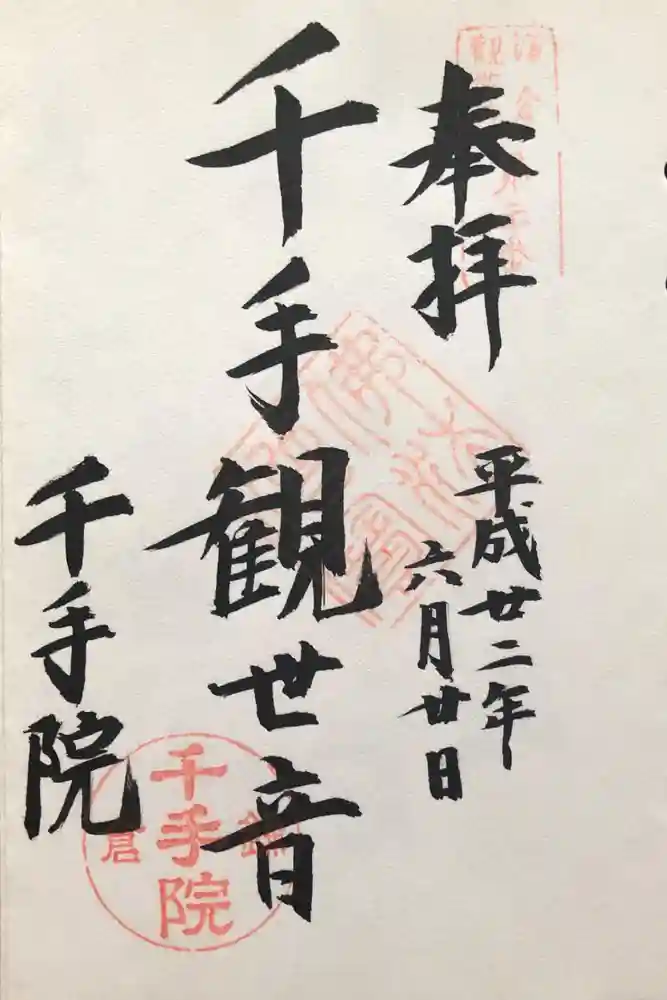 奉拝
平成廿二年
六月廿日
千手観世音
千手院
鎌倉
千手院